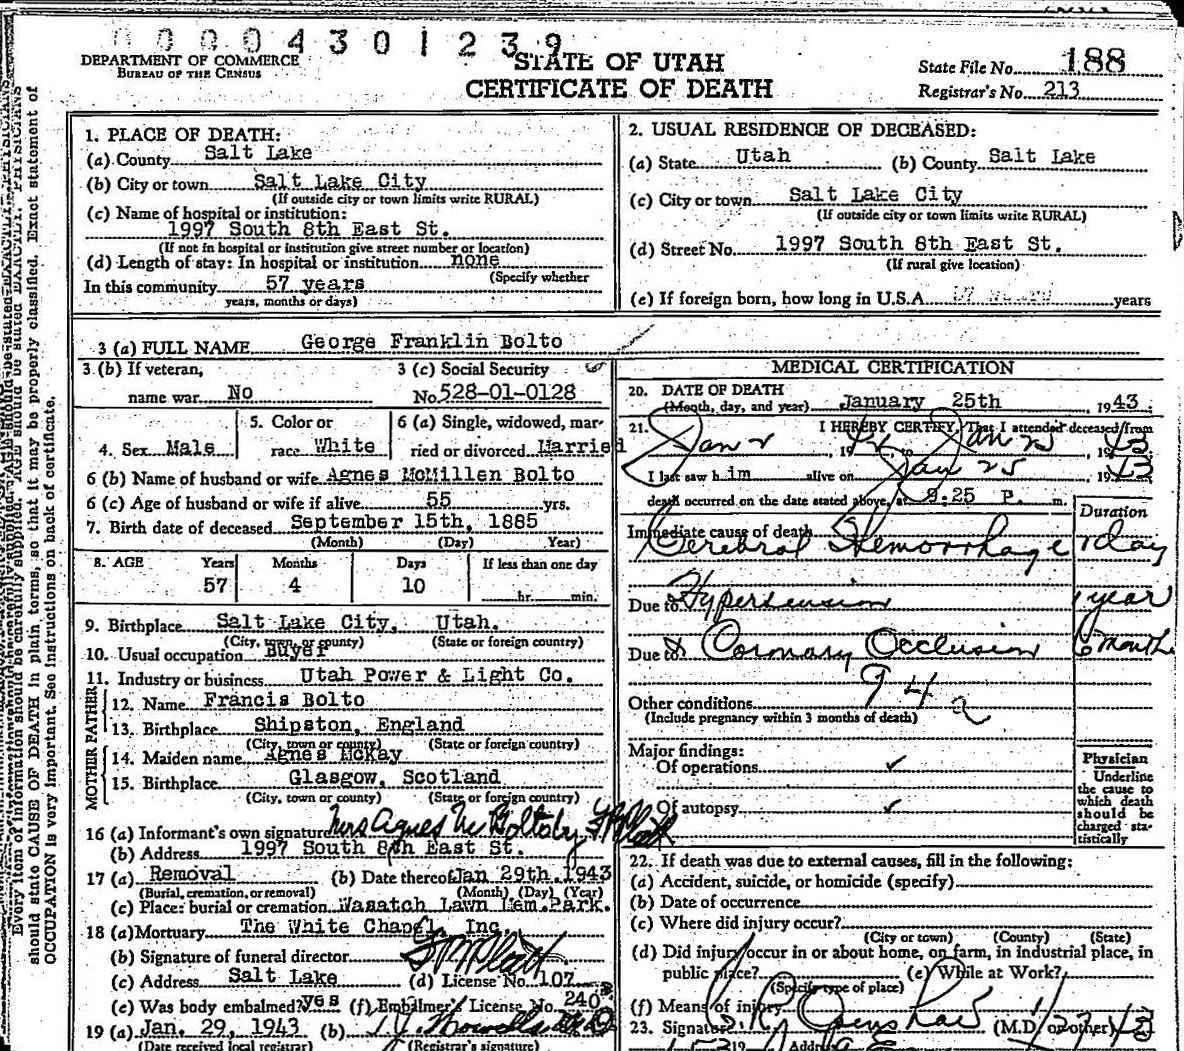 0 0 0 0 4 3 0 1 2 3 9
DEPARTMENT OF COMMERCE
BUREAU OF THE CENSUS
STATE OF UTAH
CERTIFICATE OF DEATH
State File No. 188
Registrar's No. 213
Every item of information should be carefully supplied. AGE should be stated EXACTLY. PHYSICIANS
should state CAUSE OF DEATH in plain terms, so that it may be properly classified. Exact statement of
OCCUPATION is very important. See instructions on back of certificate.
1. PLACE OF DEATH:
(a) County Salt Lake
(b) City or town Salt Lake City
(If outside city or town limits write RURAL)
(c) Name of hospital or institution:
1997 South 8th East St.
(If not in hospital or institution give street number or location)
(d) Length of stay: In hospital or institution none
(Specify whether
In this community 57 years
years, months or days)
2. USUAL RESIDENCE OF DECEASED:
(a) State Utah (b) County Salt Lake
(c) City or town Salt Lake City
(If outside city or town limits write RURAL)
(d) Street No. 1997 South 8th East St.
(If rural give location)
(e) If foreign born, how long in U.S.A. years
3 (a) FULL NAME George Franklin Bolto
3 (b) If veteran,
name war No
3 (c) Social Security
No. 528-01-0128
4. Sex Male
5. Color or
race White
6 (a) Single, widowed, mar-
ried or divorced Married
6 (b) Name of husband or wife Agnes McMillen Bolto
6 (c) Age of husband or wife if alive 55 yrs.
7. Birth date of deceased September 15th, 1885
(Month) (Day) Year)
8. AGE Years Months Days If less than one day
57 4 10 hr. min.
9. Birthplace Salt Lake City, Utah.
(City, town, or county) (State or foreign country)
10. Usual occupation Buyer
11. Industry or business Utah Power & Light Co.
FATHER
12. Name Francis Bolto
13. Birthplace Shipston, England
(City, town or county) (State or foreign country)
MOTHER
14. Maiden name Agnes McKay
15. Birthplace Glasgow, Scotland
(City, town or county) (State or foreign country)
16 (a) Informant's own signature Mrs Agnes M Bolto by
(b) Address 1997 South 8th East St.
17 (a) Removal (b) Date thereof Jan 29th.1943
(Burial, cremation, or removal) (Month) (Day) (Year)
(c) Place: burial or cremation Wasatch Lawn Mem.Park.
18 (a) Mortuary The White Chapel Inc
(b) Signature of funeral director
(c) Address Salt Lake (d) License No. 107
(e) Was body embalmed? yes (f) Embalmer's License No. 240
19 (a) Jan. 29, 1943 (b)
(Date received local registrar) (Registrar's signature)
MEDICAL CERTIFICATION
20. DATE OF DEATH
(Month, day, and year) January 25th , 1943
21. I HEREBY CERTIFY, That I attended deceased from
Jan 2 , 19 42, to Jan 25 , 1943
I last saw him alive on Jan 25 , 1943
death occurred on the date stated above, at 9:25 P. m.
Duration
Immediate cause of death
Cerebral Hemorrhage 1 day
Due to Hypertension 1 year
Due to & Coronary Occlusion 6 months
94a
Other conditions
(Include pregnancy within 3 months of death)
Major findings:
Of operations ✓
Of autopsy ✓
Physician
Underline
the cause to
which death
should be
charged sta-
tistically
22. If death was due to external causes, fill in the following:
(a) Accident, suicide, or homicide (specify)
(b) Date of occurrence
(c) Where did injury occur?
(City or town) (County) (State)
(d) Did injury occur in or about home, on farm, in industrial place, in
public place? (e) While at Work?
(Specify type of place)
(f) Means of injury
23. Signature R Openshaw (M.D. or other) 1/27/43
Address